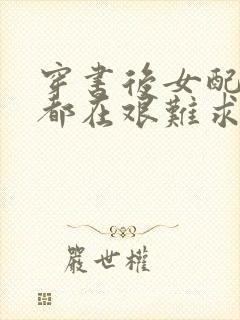 穿書後女配
都在艱難求
嚴世權